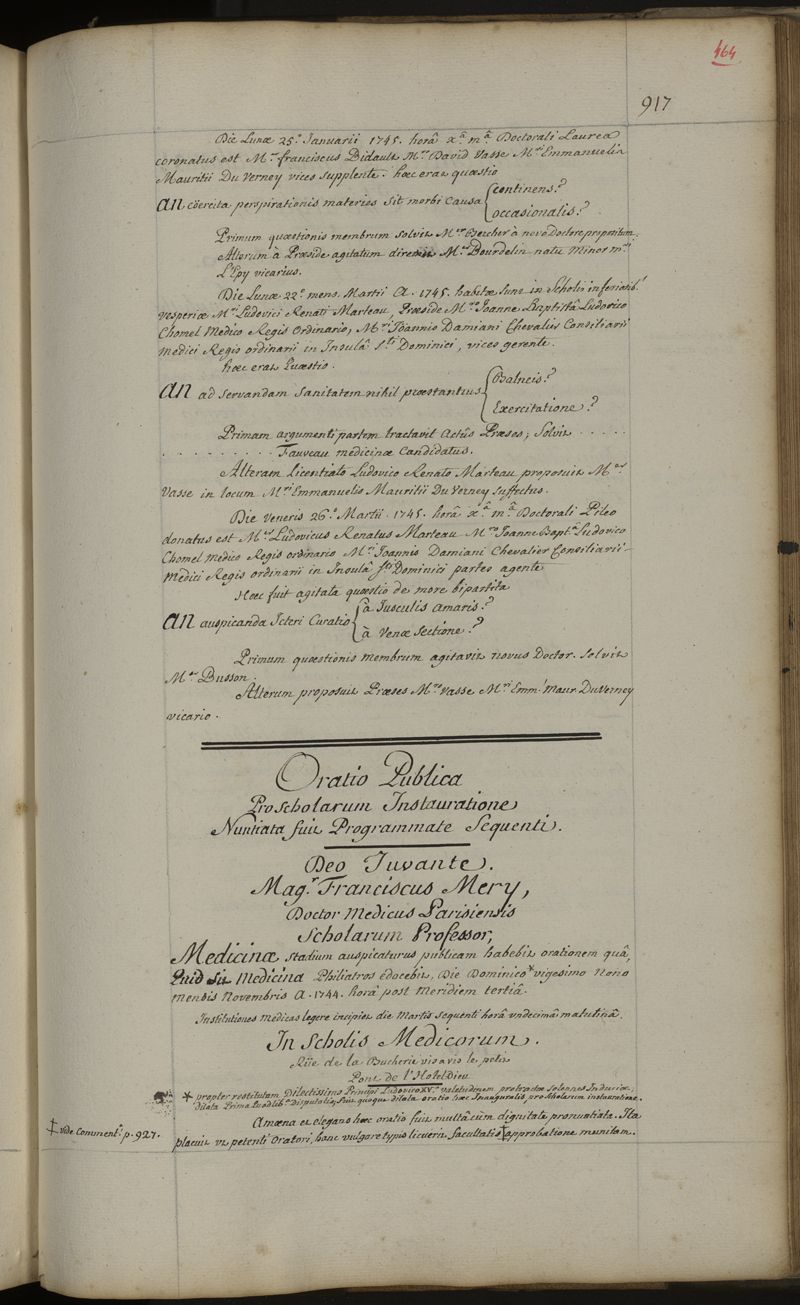 464
917
Die Lunæ 25.ª Januarii 1745. horâ Xª mª Doctorali Laurea
coronatus est M.er franciscus Bidault M.ro David Vasse M.ri Emmanuelis
Mauritii Du Verney vices supplente. hæc erat quæstio
An cöercita perspirationis materies sit morbi Causa { continens?
occasionalis?
Primum quæstionis membrum solvit M.er Bercher à novo Doctore propositum.
Alterum à Præside agitatum diremit M.er Bourdelin natu minor m.ri
L'Epy vicarius.
Die Lunæ 22.ª mens. Martii A. 1745. habitæ sunt in Scholis inferiorib.s
vesperiæ M.ri Ludovici Renati Marteau, Præside M.ro Joanne Baptistâ Ludovico
Chomel Medico Regis Ordinario, M.ri Joannis Damiani Chevalier Consiliarii
Medici Regis ordinarii in Insulâ S.ti Dominici, vices gerente.
hæc erat Quæstio.
An ad servandam Sanitatem nihil præstantius { Balneis?
Exercitatione?
Primam argumenti partem tractavit Actûs Præses; Solvit . . . . .
. . . . . . . . . . Fauveau medicinæ Candidatus.
Alteram Licentiato Ludovico Renato Marteau proposuit M.er
Vasse in locum M.ri Emmanuelis Mauritii Du Verney suffectus.
Die Veneris 26.ª Martii. 1745. horâ Xª mª Doctorali Pileo
donatus est M.er Ludovicus Renatus Marteau M.ro Joanne Bapt.a Ludovico
Chomel Medico Regis ordinario M.ri Joannis Damiani Chevalier Consiliarii
Medici Regis ordinarii in Insulâ S.ti Dominici partes agente
Hæc fuit agitata quæstio de more bipartita
An auspicanda Icteri Curatio { à Jusculis amaris?
à Venæ Sectione?
Primum quæstionis membrum agitavit novus Doctor. Solvit
M.er Busson.
Alterum proposuit Præses M.ro Vasse M.ri Emm. Maur. Du Verney
vicario.
Oratio Publica
Pro Scholarum Instauratione
Nuntiata fuit Programmate Sequenti.
Deo Juvante.
Mag.r Franciscus Mery,
Doctor Medicus Parisiensis
Scholarum Professor,
Medicinæ stadium auspicaturus publicam habebit orationem quâ,
Quid Sit Medicina Philiatros edocebit, Die Dominico * vigesimo nono
mensis Novembris A. 1744. horâ post Meridiem tertiâ.
Institutiones Medicas legere incipiet die Martis sequenti horâ undecimâ matutinâ.
In Scholis Medicorum.
Rüe de la Bucherie vis a vis le petit
Pont de l'Hotel Dieu
* propter restitutam Dilectissimo Principi Ludovico XV.º valetudinem protractæ solennes Induciæ;
dilata Prima Quodlib.ria Disputatio, fuit quoque dilata oratio hæc Inauguralis pro Scholarum instauratione.
Amœna et elegans hæc oratio fuit multâ cum dignitate pronuntiata. Ita
placuit ut petenti Oratori, hanc vulgare typis licuerit facultatis ‡ approbatione munitam.
‡ vide Comment. p. 927.